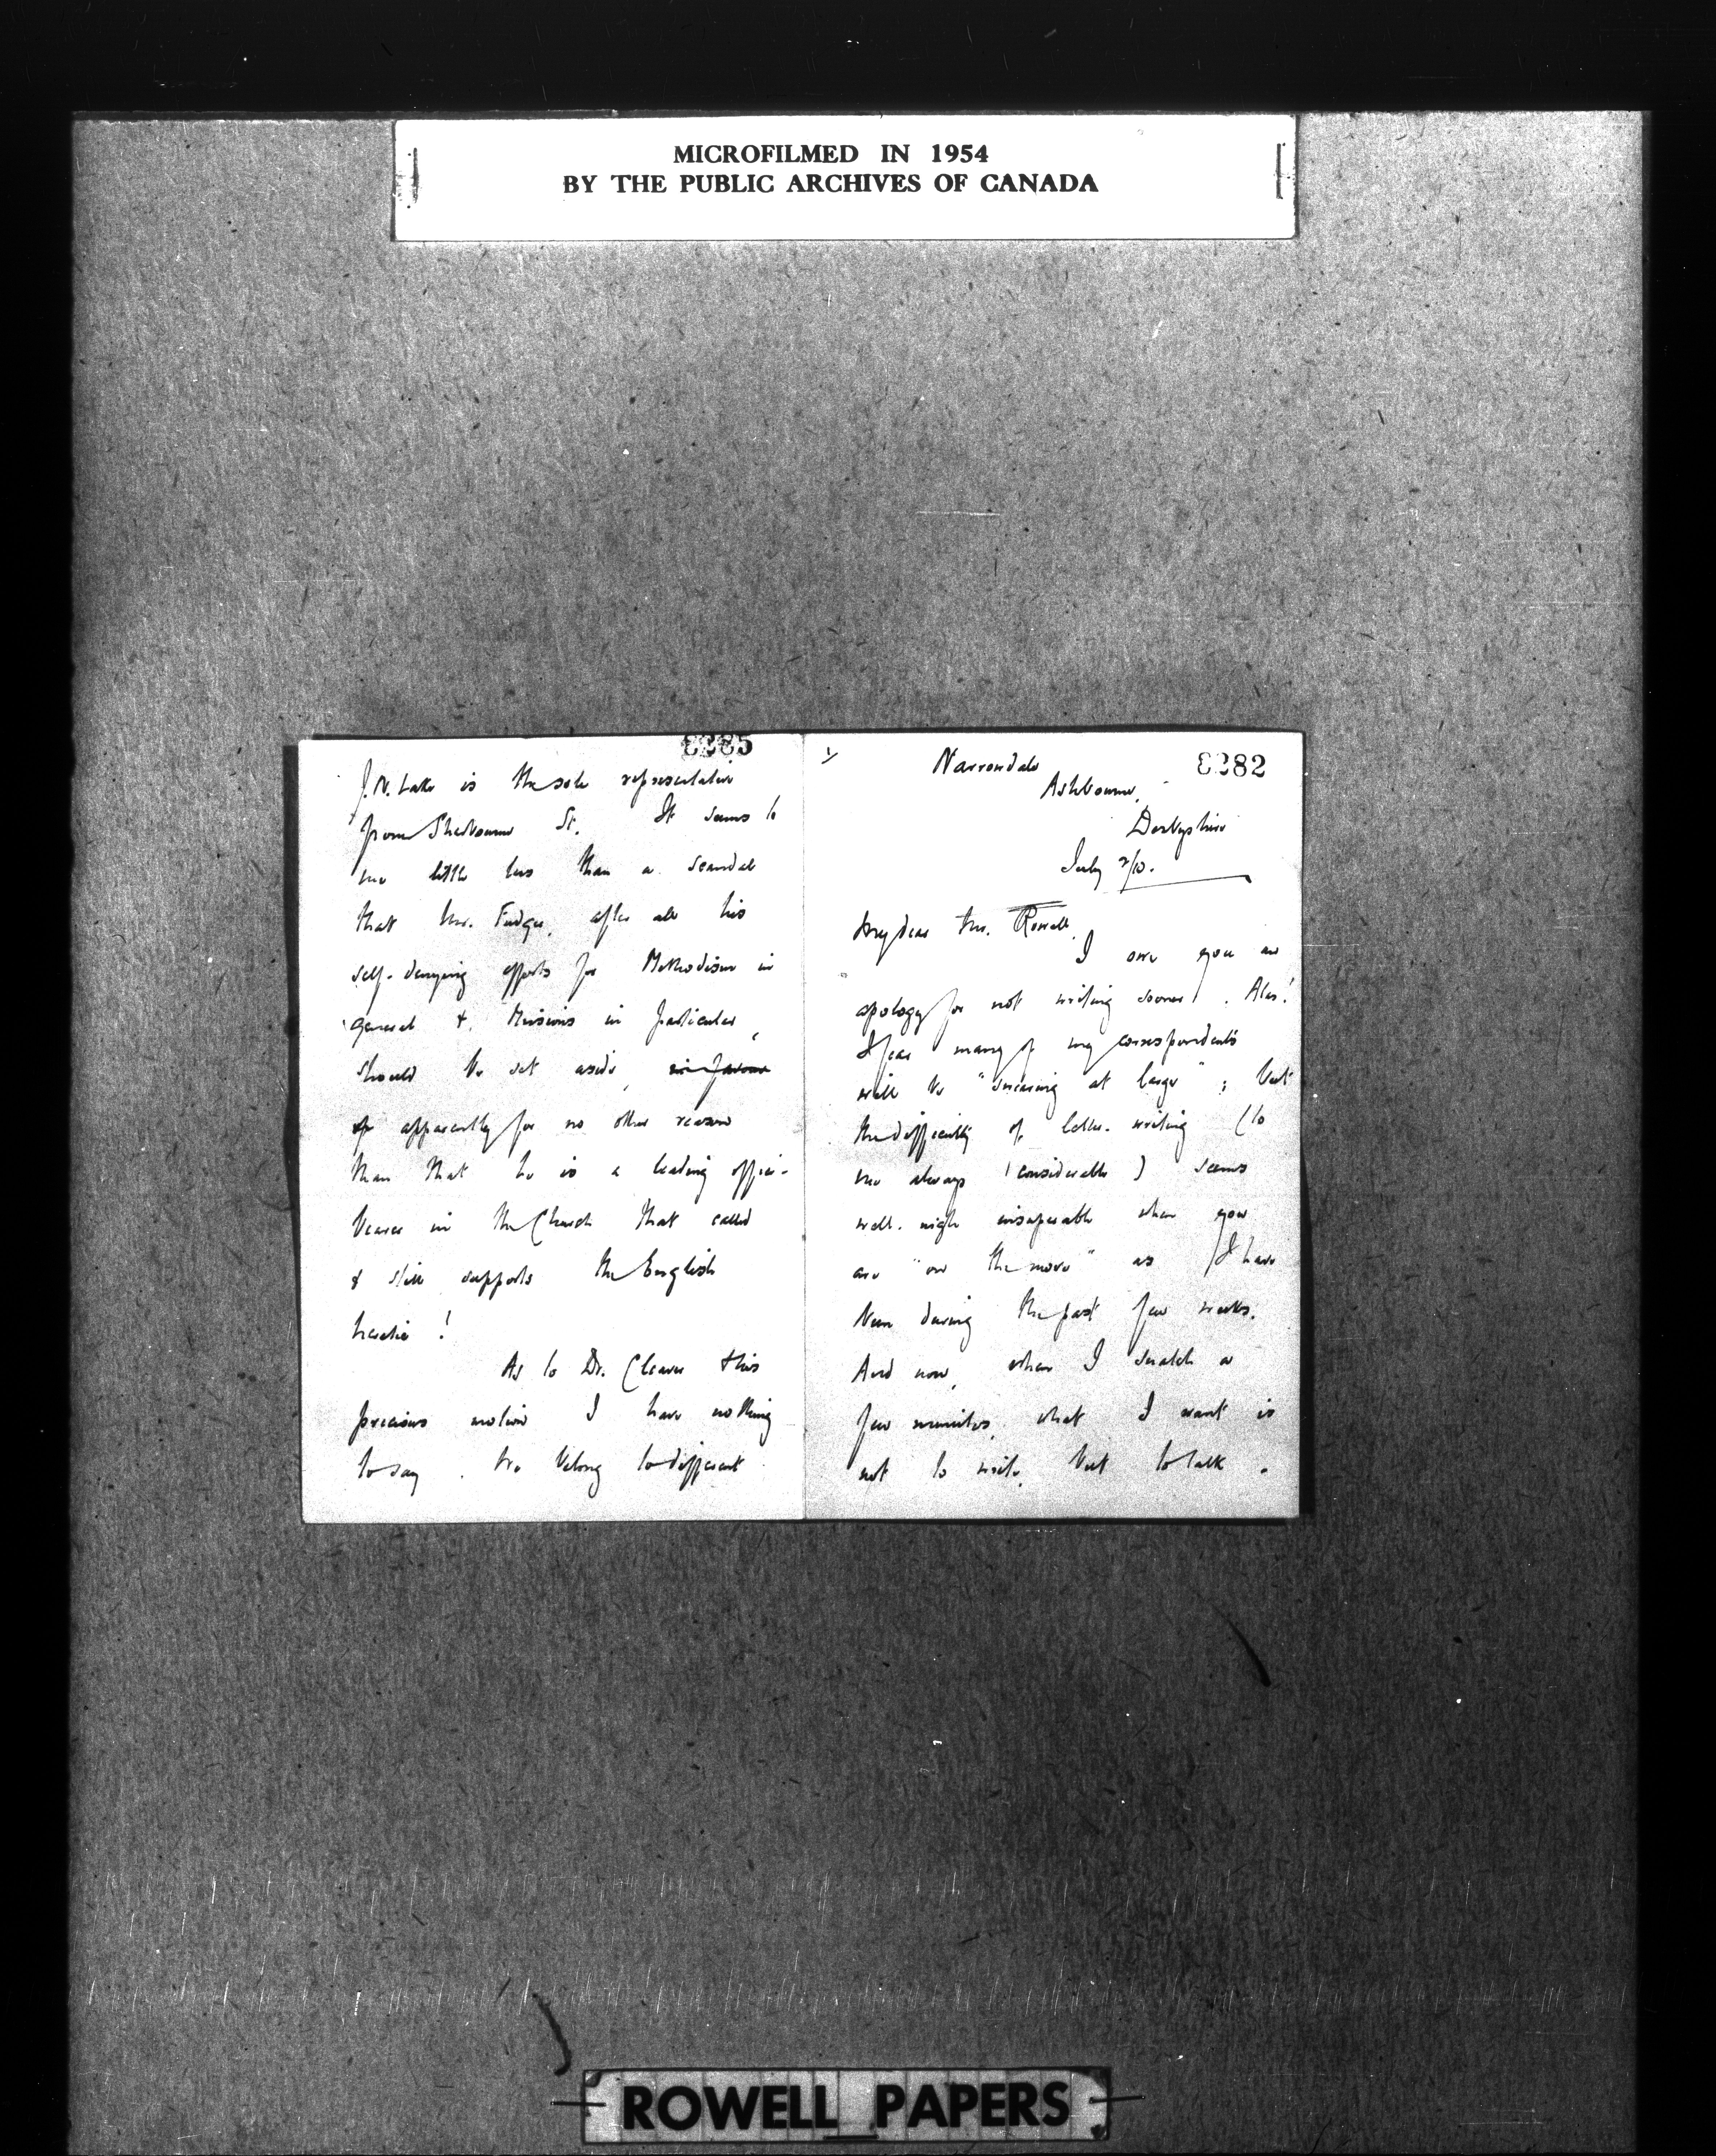 MICROFILMED IN 1954
BY THE PUBLIC ARCHIVES OF CANADA
8285
J. N. Lake is the sole representative
from Sherbourne St. It seems to
me little less than a scandal
that Mr. Fudger, after all his
self-denying efforts for Methodism in
general & Missions in particular,
should be set aside, in favour
apparently for no other reason
than that he is a leading office-
bearer in the Church that called
& still supports the English
heretic!
As to Dr. Cleaver & this
precious motion I have nothing
to say. We belong to different
1/
8282
Narrowdale
Ashbourne,
Derbyshire
July /10.
My dear Mr. Rowell,
I owe you an
apology for not writing sooner. Alas!
I fear many of my correspondents
will be "sneering at large"; but
the difficulty of letter-writing (to
me always considerable) seems
well-nigh insuperable when you
are "on the move" as I have
been during the past few weeks.
And now, when I snatch a
few minutes, what I want is
not to write, but to talk.
ROWELL PAPERS